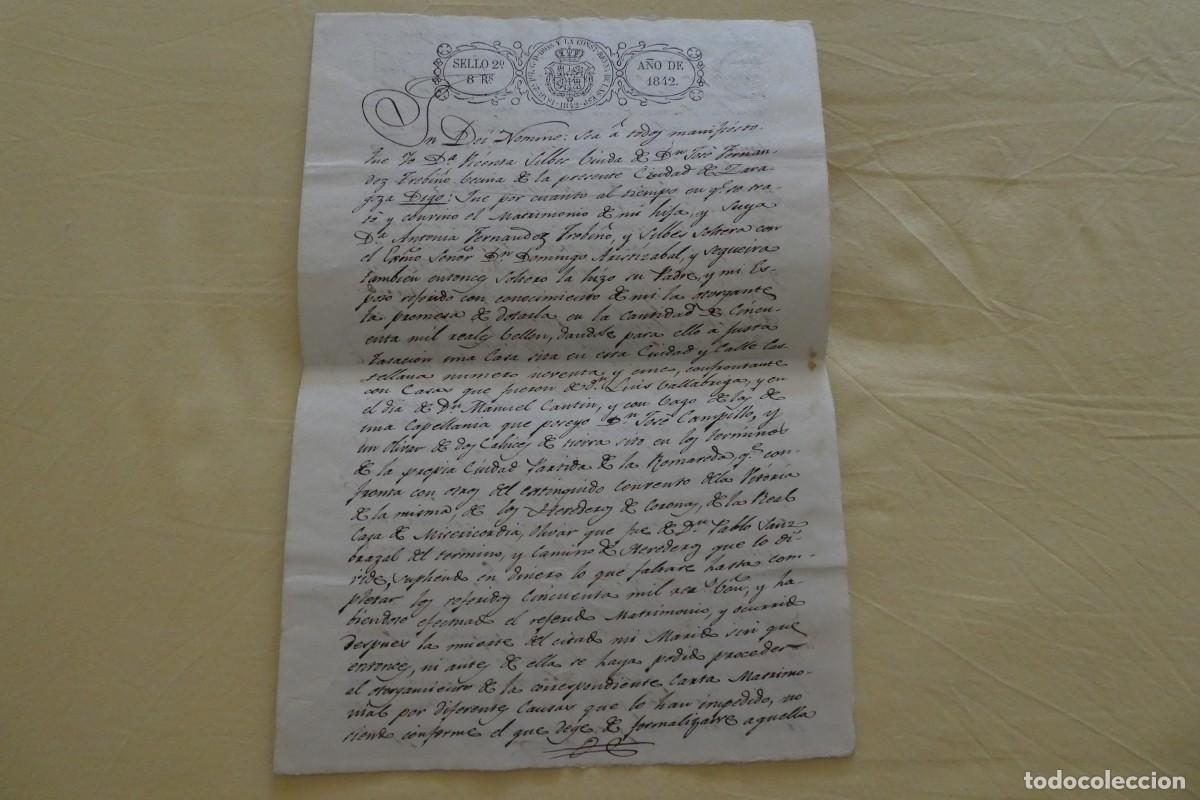 SELLO 2º
8 Rs
YS. 2ª. P. L. G. D. DIOS Y LA CONST. REYNA DE LAS ESP. 1842
AÑO DE
1842.
In Dei Nomine: sea a todos manifiesto
que Yo Dª Vicenta Silbes Viuda de Dn José Fernan-
dez Trebiño Vecina de la presente Ciudad de Zara-
goza Digo: Que por cuanto al tiempo en qe se tra-
tó y convino el Matrimonio de mi hija, y suya
Dª Antonia Fernandez Trebiño, y Silbes Soltera con
el Exmo Señor Dn Domingo Aristizabal, y Sequeira
tambien entonces Soltero la hizo su Padre, y mi Es-
poso referido con conocimiento de mi la otorgante
la promesa de dotarla en la cantidad de Cincu-
enta mil reales Vellon, dandole para ello a justa
tasacion una Casa sita en esta Ciudad y Calle Cas-
tellana numero noventa y once, confrontante
con Casas que fueron de Dn Luis Vallabriga, y en
el dia de Dn Manuel Cantin, y con bago de los de
una Capellania que poseyo Dn José Campillo, y
un Olivar de dos Cahices de tierra sito en los terminos
de la propia Ciudad Partida de la Romareda, qe con-
fronta con otros del extinguido Convento dela Vitoria
de la misma, de los Herederos de Coronas, de la Real
Casa de Misericordia, Olivar que fue de Dn Pablo Sanz
brazal del termino, y Camino de Herederos que lo di-
vide, supliendo en dinero lo que faltare hasta com-
pletar los referidos Cincuenta mil rs. Von, y ha-
biendose efectuado el referido Matrimonio, y ocurrido
despues la muerte del citado mi Marido sin que
entonces, ni antes de ella se haya podido proceder
al otorgamiento de la correspondiente Carta Matrimo-
nial por diferentes Causas que lo han impedido, no
siendo conforme el que deje de formalizarse aquella
todocoleccion